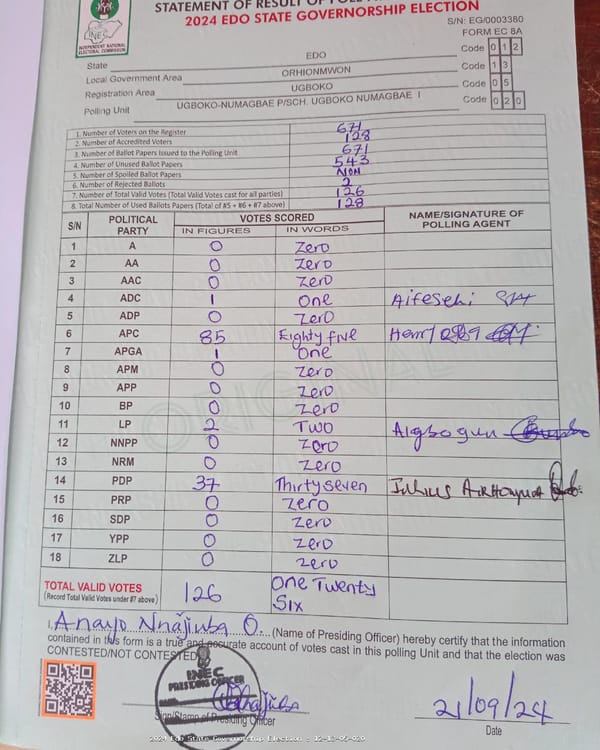 STATEMENT OF RESULT OF POLL
2024 EDO STATE GOVERNORSHIP ELECTION
S/N: EG/0003380
FORM EC 8A
INEC
INDEPENDENT NATIONAL
ELECTORAL COMMISSION
State EDO Code 0 1 2
Local Government Area ORHIONMWON Code 1 3
Registration Area UGBOKO Code 0 5
Polling Unit UGBOKO-NUMAGBAE P/SCH. UGBOKO NUMAGBAE I Code 0 2 0
1. Number of Voters on the Register 671
2. Number of Accredited Voters 128
3. Number of Ballot Papers Issued to the Polling Unit 671
4. Number of Unused Ballot Papers 543
5. Number of Spoiled Ballot Papers
6. Number of Rejected Ballots 2
7. Number of Total Valid Votes (Total Valid Votes cast for all parties) 126
8. Total Number of Used Ballots Papers (Total of #5 + #6 + #7 above) 128
S/N POLITICAL PARTY VOTES SCORED NAME/SIGNATURE OF POLLING AGENT
IN FIGURES IN WORDS
1 A 0 Zero
2 AA 0 Zero
3 AAC 0 Zero
4 ADC 1 One Aifesehi
5 ADP 0 Zero
6 APC 85 Eighty five Henry
7 APGA 1 One
8 APM 0 Zero
9 APP 0 Zero
10 BP 0 Zero
11 LP 2 Two Aigbogun
12 NNPP 0 Zero
13 NRM 0 Zero
14 PDP 37 Thirty seven Julius
15 PRP 0 Zero
16 SDP 0 Zero
17 YPP 0 Zero
18 ZLP 0 Zero
TOTAL VALID VOTES 126 One Twenty
(Record Total Valid Votes under #7 above) Six
ORIGINAL
I, Anayo Nnajiuba O. (Name of Presiding Officer) hereby certify that the information
contained in this form is a true and accurate account of votes cast in this polling Unit and that the election was
CONTESTED/NOT CONTESTED
INEC
PRESIDING OFFICER
Sign/Stamp of Presiding Officer
21/09/24
Date
2024 Edo State Governorship Election : 12-13-05-020